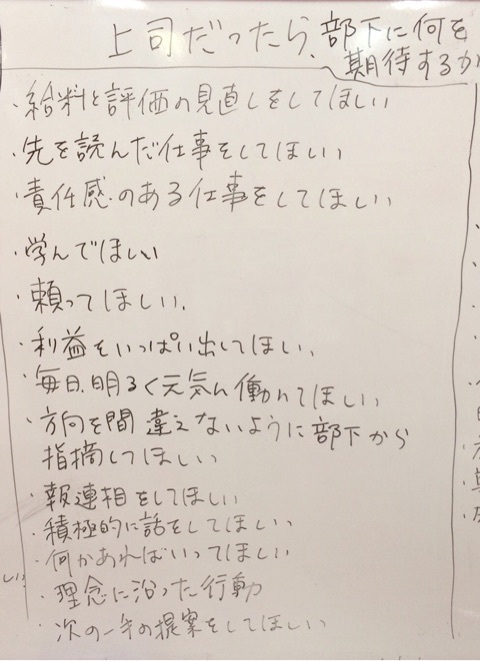 上司だったら、部下に何を
期待するか
・給料と評価の見直しをしてほしい
・先を読んだ仕事をしてほしい
・責任感のある仕事をしてほしい
・学んでほしい
・頼ってほしい、
・利益をいっぱい出してほしい、
・毎日、明るく元気に働いてほしい
・方向を間違えないように部下から
指摘してほしい
・報連相をしてほしい
・積極的に話をしてほしい
・何かあればいってほしい
・理念に沿った行動
・次の一手の提案をしてほしい